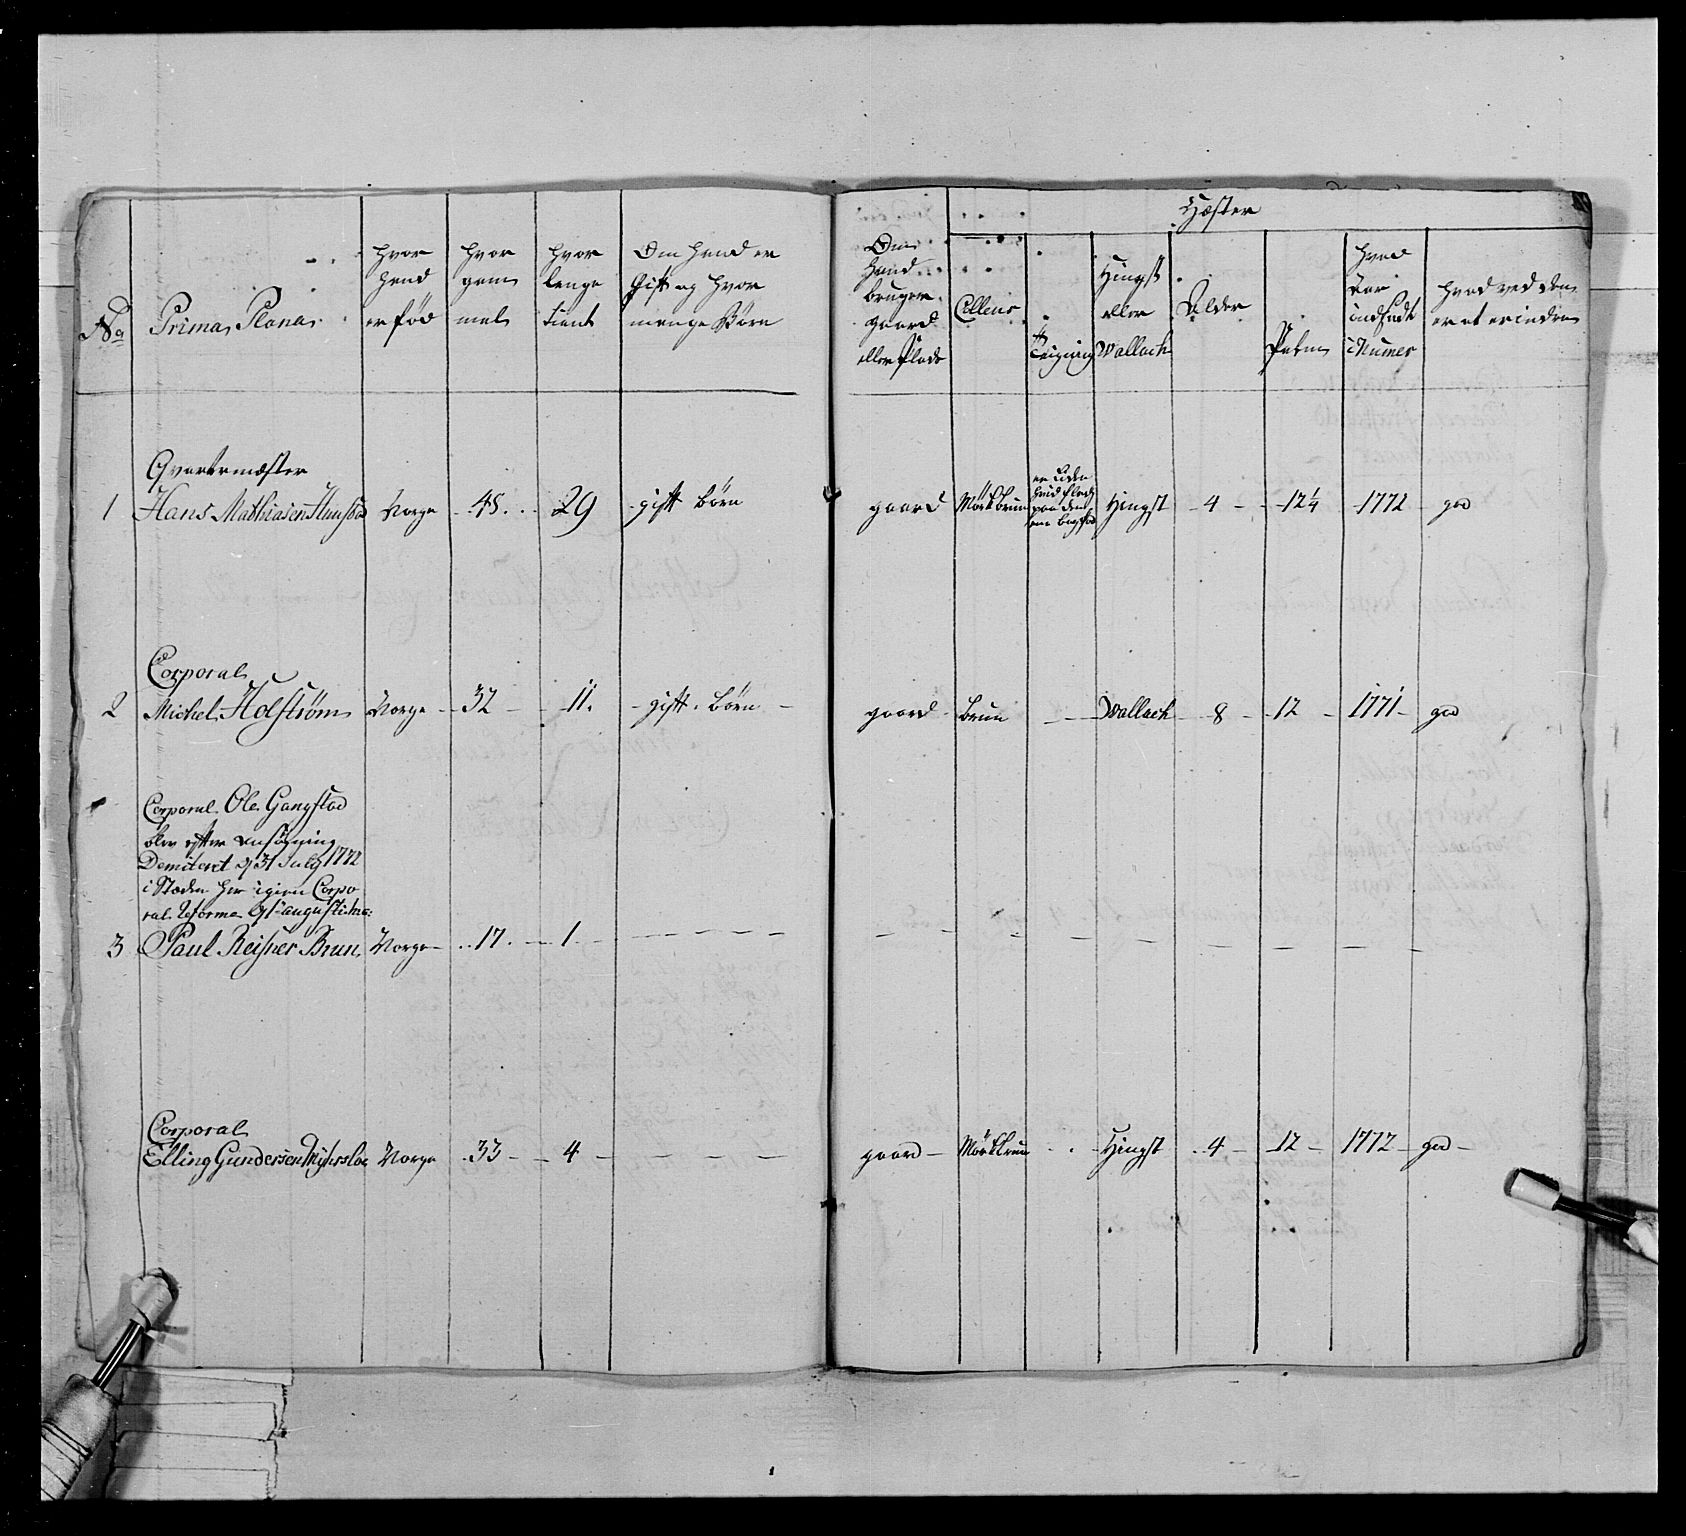 No
Prima Plana
hvor
hand
er fød
hvor
gam
mel
hvor
lenge
tient
Om hand er
Gift og hvor
mange Børn
Om
hand
bruger
gaard
eller Plads
Hæster
Colleur
Teigning
Hingst
eller
Wallach
Alder
Palm
hvad
Aar
indsadt
i Numer
hvad ved den
er at erindre
Qvartermæster
1 Hans Mathiasen Norge 45 29 gift børn gaard Mörkbrun er liden
hvid flech
paa den
ene bagfod Hingst 4 12 1/4 1772 god
Corporal
2 Michel Holstrøm Norge 32 11 gift børn gaard brun Wallach 8 12 1771 god
Corporal Ole Gangstad
blev efter Ansøgning
Demiteret d 31 July 1772
i Stæden her igien Corpo
ral Reforme
3 Paul Reisner Brun Norge 17 1
Corporal
Elling Gundersen Norge 33 4 gaard Mörkbrun Hingst 4 12 1772 god